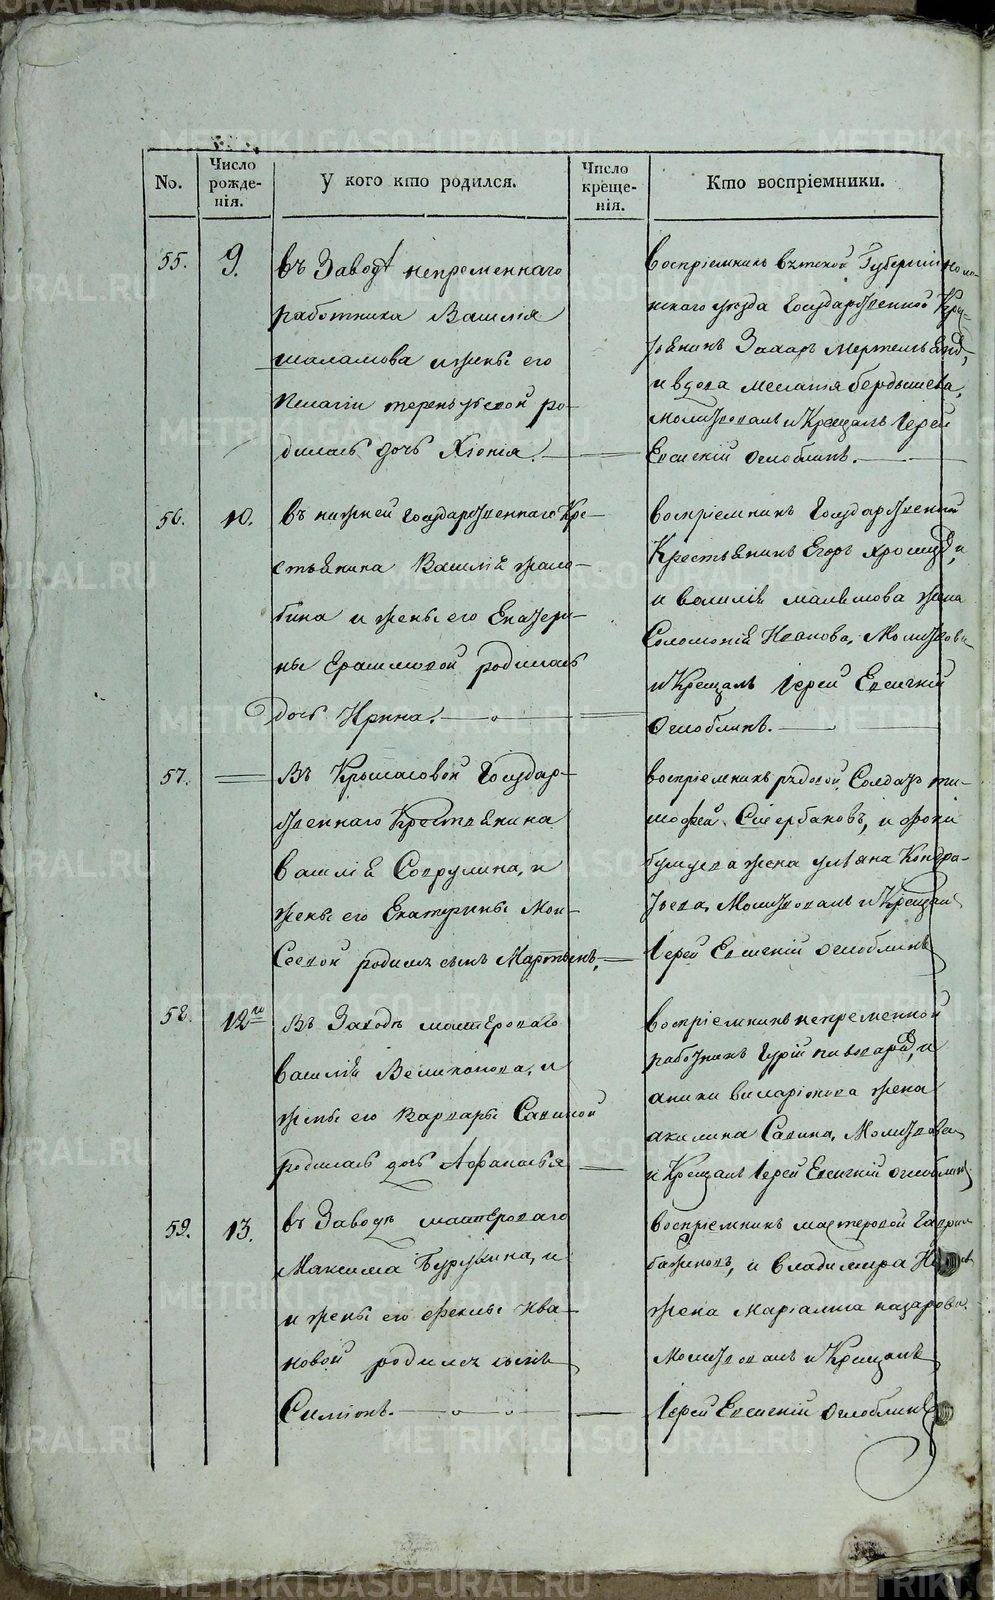 METRIKI.GASO-URAL.RU
No.
Число рожде-нія.
У кого кто родился.
Число креще-нія.
Кто воспріемники.
55.
9.
въ Заводѣ непременнаго
работника Василія
шаламова и жены его
Пелагіи терентьевой ро-
дилась дочь Хіонія.
воспріемникъ вятской Губерніи
уезда Государственной Кре-
Захаръ
и вдова мелатія бердышева,
молитвовалъ и Крещалъ Іерей
Евсигній Оглоблинъ.
56.
10.
въ нижней Государственнаго Кре-
стьянина Василія
бина и жены его Екатери-
ны Ерасимовой родилась
дочь Ирина.
воспріемникъ Государственный
Крестьянинъ Егоръ
и василія жена
Соломонія Иванова, Молитвова
и Крещалъ Іерей Евсигній
Оглоблинъ.
57.
Въ Крыласовой Государ-
ственнаго Крестьянина
василія и
жены его Екатерины Мои-
сеевой родился сынъ Мартынъ,
воспріемникъ рядовой Солдатъ ти-
мофей Щербаковъ, и
жена ульяна Кондра-
тьева, Молитвовалъ и Крещалъ
Іерей Евсигній Оглоблинъ
58.
12го
Въ Заводѣ мастероваго
василія и
жены его Варвары Савиной
родилась дочь Афанасья
воспріемникъ непременной
работникъ Гурій и
жена
акилина Савина, Молитвова
и Крещалъ Іерей Евсигній Оглоблинъ
59.
13.
въ Заводѣ мастероваго
Максима и
и жены его Феклы Ива-
новой родился сынъ
Симіонъ.
воспріемникъ мастеровой
и владимира
жена Маріамна назарова
Молитвовалъ и Крещалъ
Іерей Евсигній Оглоблинъ